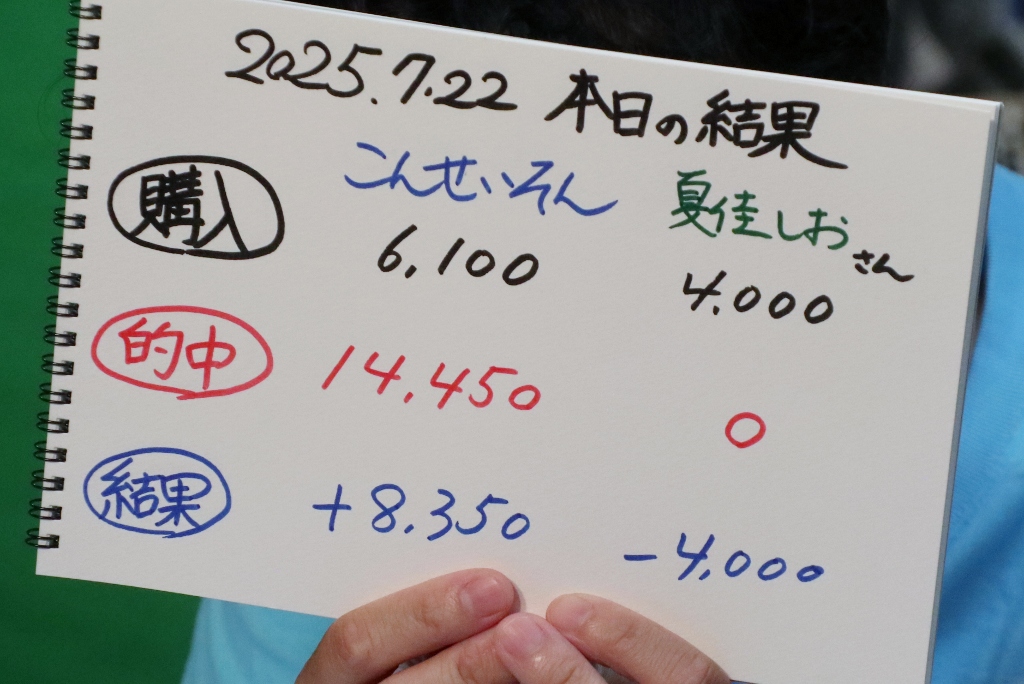 2025.7.22 本日の結果
購入 こんせいそん 夏佳しおさん
6,100 4.000
的中 14.450 0
結果 +8.350 -4.000